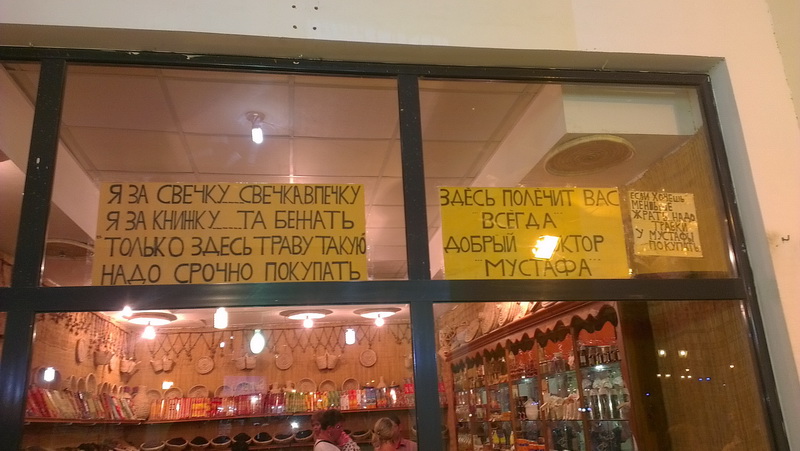 Я ЗА СВЕЧКУ...СВЕЧКАВПЕЧКУ
Я ЗА КНИЖКУ....ТА БЕЖАТЬ
ТОЛЬКО ЗДЕСЬ ТРАВУ ТАКУЮ
НАДО СРОЧНО ПОКУПАТЬ
ЗДЕСЬ ПОЛЕЧИТ ВАС
ВСЕГДА
ДОБРЫЙ
МУСТАФА
ЕСЛИ ХОЧЕШЬ
МЕНЬШЕ
ЖРАТЬ НАДО
У МУСТАФЫ
ПОКУПАТЬ